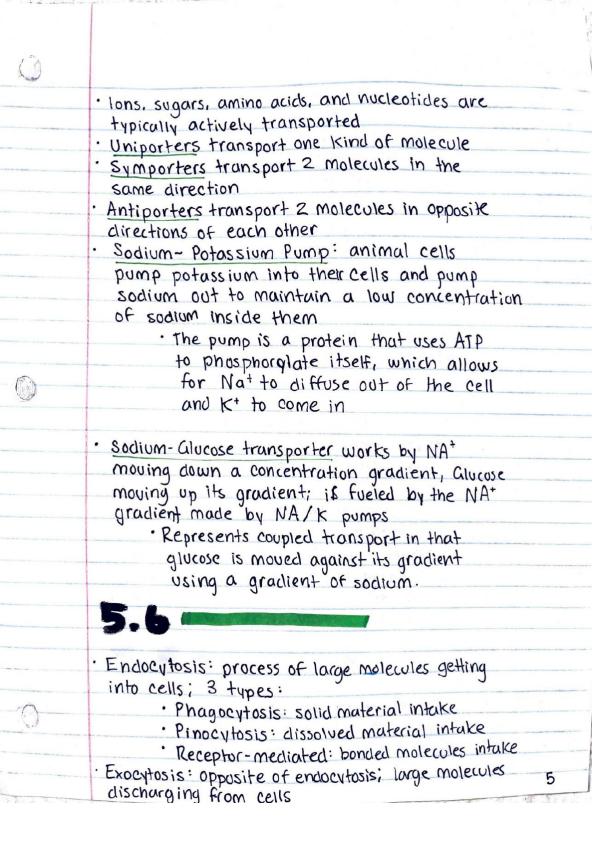 • Ions, sugars, amino acids, and nucleotides are
typically actively transported
• Uniporters transport one kind of molecule
• Symporters transport 2 molecules in the
same direction
• Antiporters transport 2 molecules in opposite
directions of each other
• Sodium-Potassium Pump: animal cells
pump potassium into their cells and pump
sodium out to maintain a low concentration
of sodium inside them
• The pump is a protein that uses ATP
to phosphorylate itself, which allows
for Na⁺ to diffuse out of the cell
and K⁺ to come in
• Sodium-Glucose transporter works by NA⁺
moving down a concentration gradient, Glucose
moving up its gradient; is fueled by the NA⁺
gradient made by NA/K pumps
• Represents coupled transport in that
glucose is moved against its gradient
using a gradient of sodium.
5.6
• Endocytosis: process of large molecules getting
into cells; 3 types:
• Phagocytosis: solid material intake
• Pinocytosis: dissolved material intake
• Receptor-mediated: bonded molecules intake
• Exocytosis: opposite of endocytosis; large molecules
discharging from cells
5